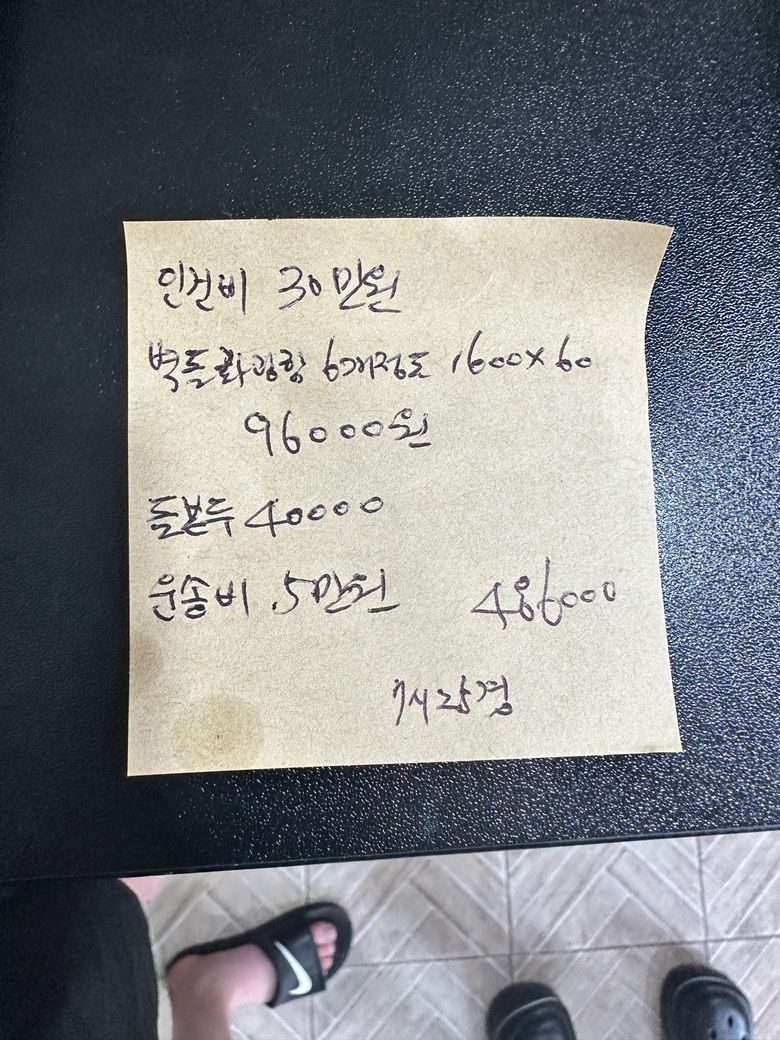 인건비 30만원
벽돌 6개정도 1600×60
96000원
돌본두 40000
운송비 5만원 486000